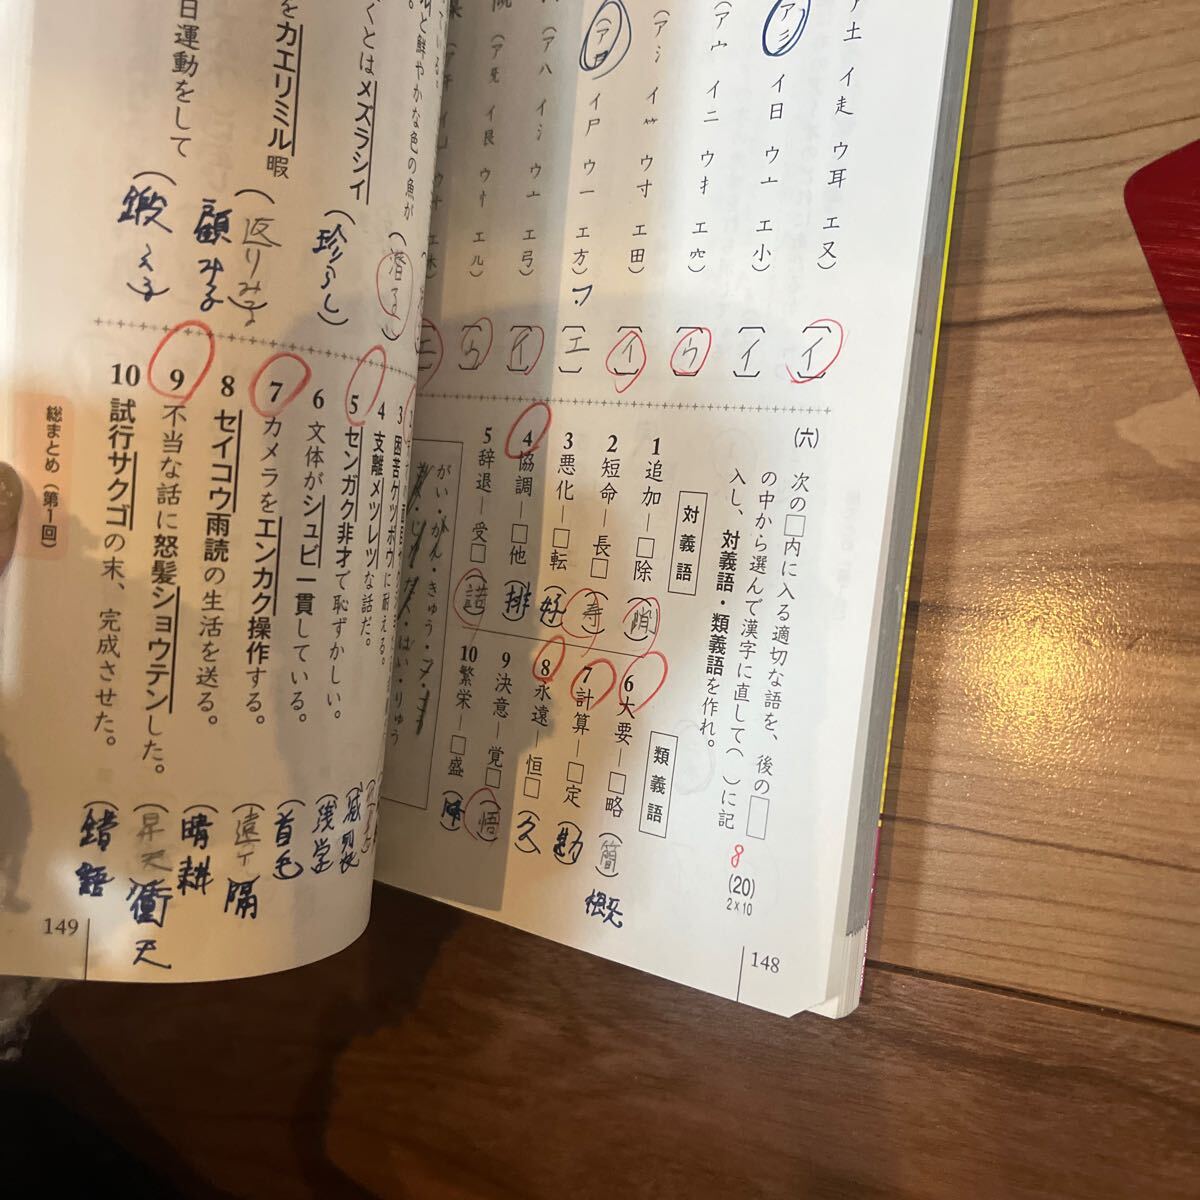 ア土 イ走 ウ耳 エ又)
イ日 ウ亠 エ小)
(アウ イ二 ウ扌 エ穴)
(アシ イ⺮ ウ寸 エ田)
イ尸 ウ一 エ方)
(アハ イシ ウ亠 エ弓)
イ
イ
ウ
イ
エ
イ
ウ
エ
(六)
次の□内に入る適切な語を、後の□
の中から選んで漢字に直して( )に記
入し、対義語・類義語を作れ。
8
(20)
2×10
対義語
1 追加―□除(削)
2 短命―長□(寿)
3 悪化―□転(好)
4 協調―□他(排)
5 辞退―受□(諾)
類義語
6 大要―□略(簡)
概
7 計算―□定(勘)
8 永遠―恒□(久)
9 決意―覚□(悟)
10 繁栄―□盛(隆)
がい・かん・きゅう・
はい・りゅう
148
と鮮やかな色の魚が
(潜る)
くとはメズラシイ
(珍らし)
をカエリミル暇
(返りみる)
顧みる
日運動をして
(鍛える)
3 困苦ケツボウに耐える。
4 支離メツレツな話だ。
滅裂
5 センガク非才で恥ずかしい。
(浅学)
6 文体がシュビ一貫している。
(首毛)
7 カメラをエンカク操作する。
遠
隔
8 セイコウ雨読の生活を送る。
(晴耕)
9 不当な話に怒髪ショウテンした。
(昇天)
衝天
10 試行サクゴの末、完成させた。
(錯誤)
総まとめ(第1回)
149